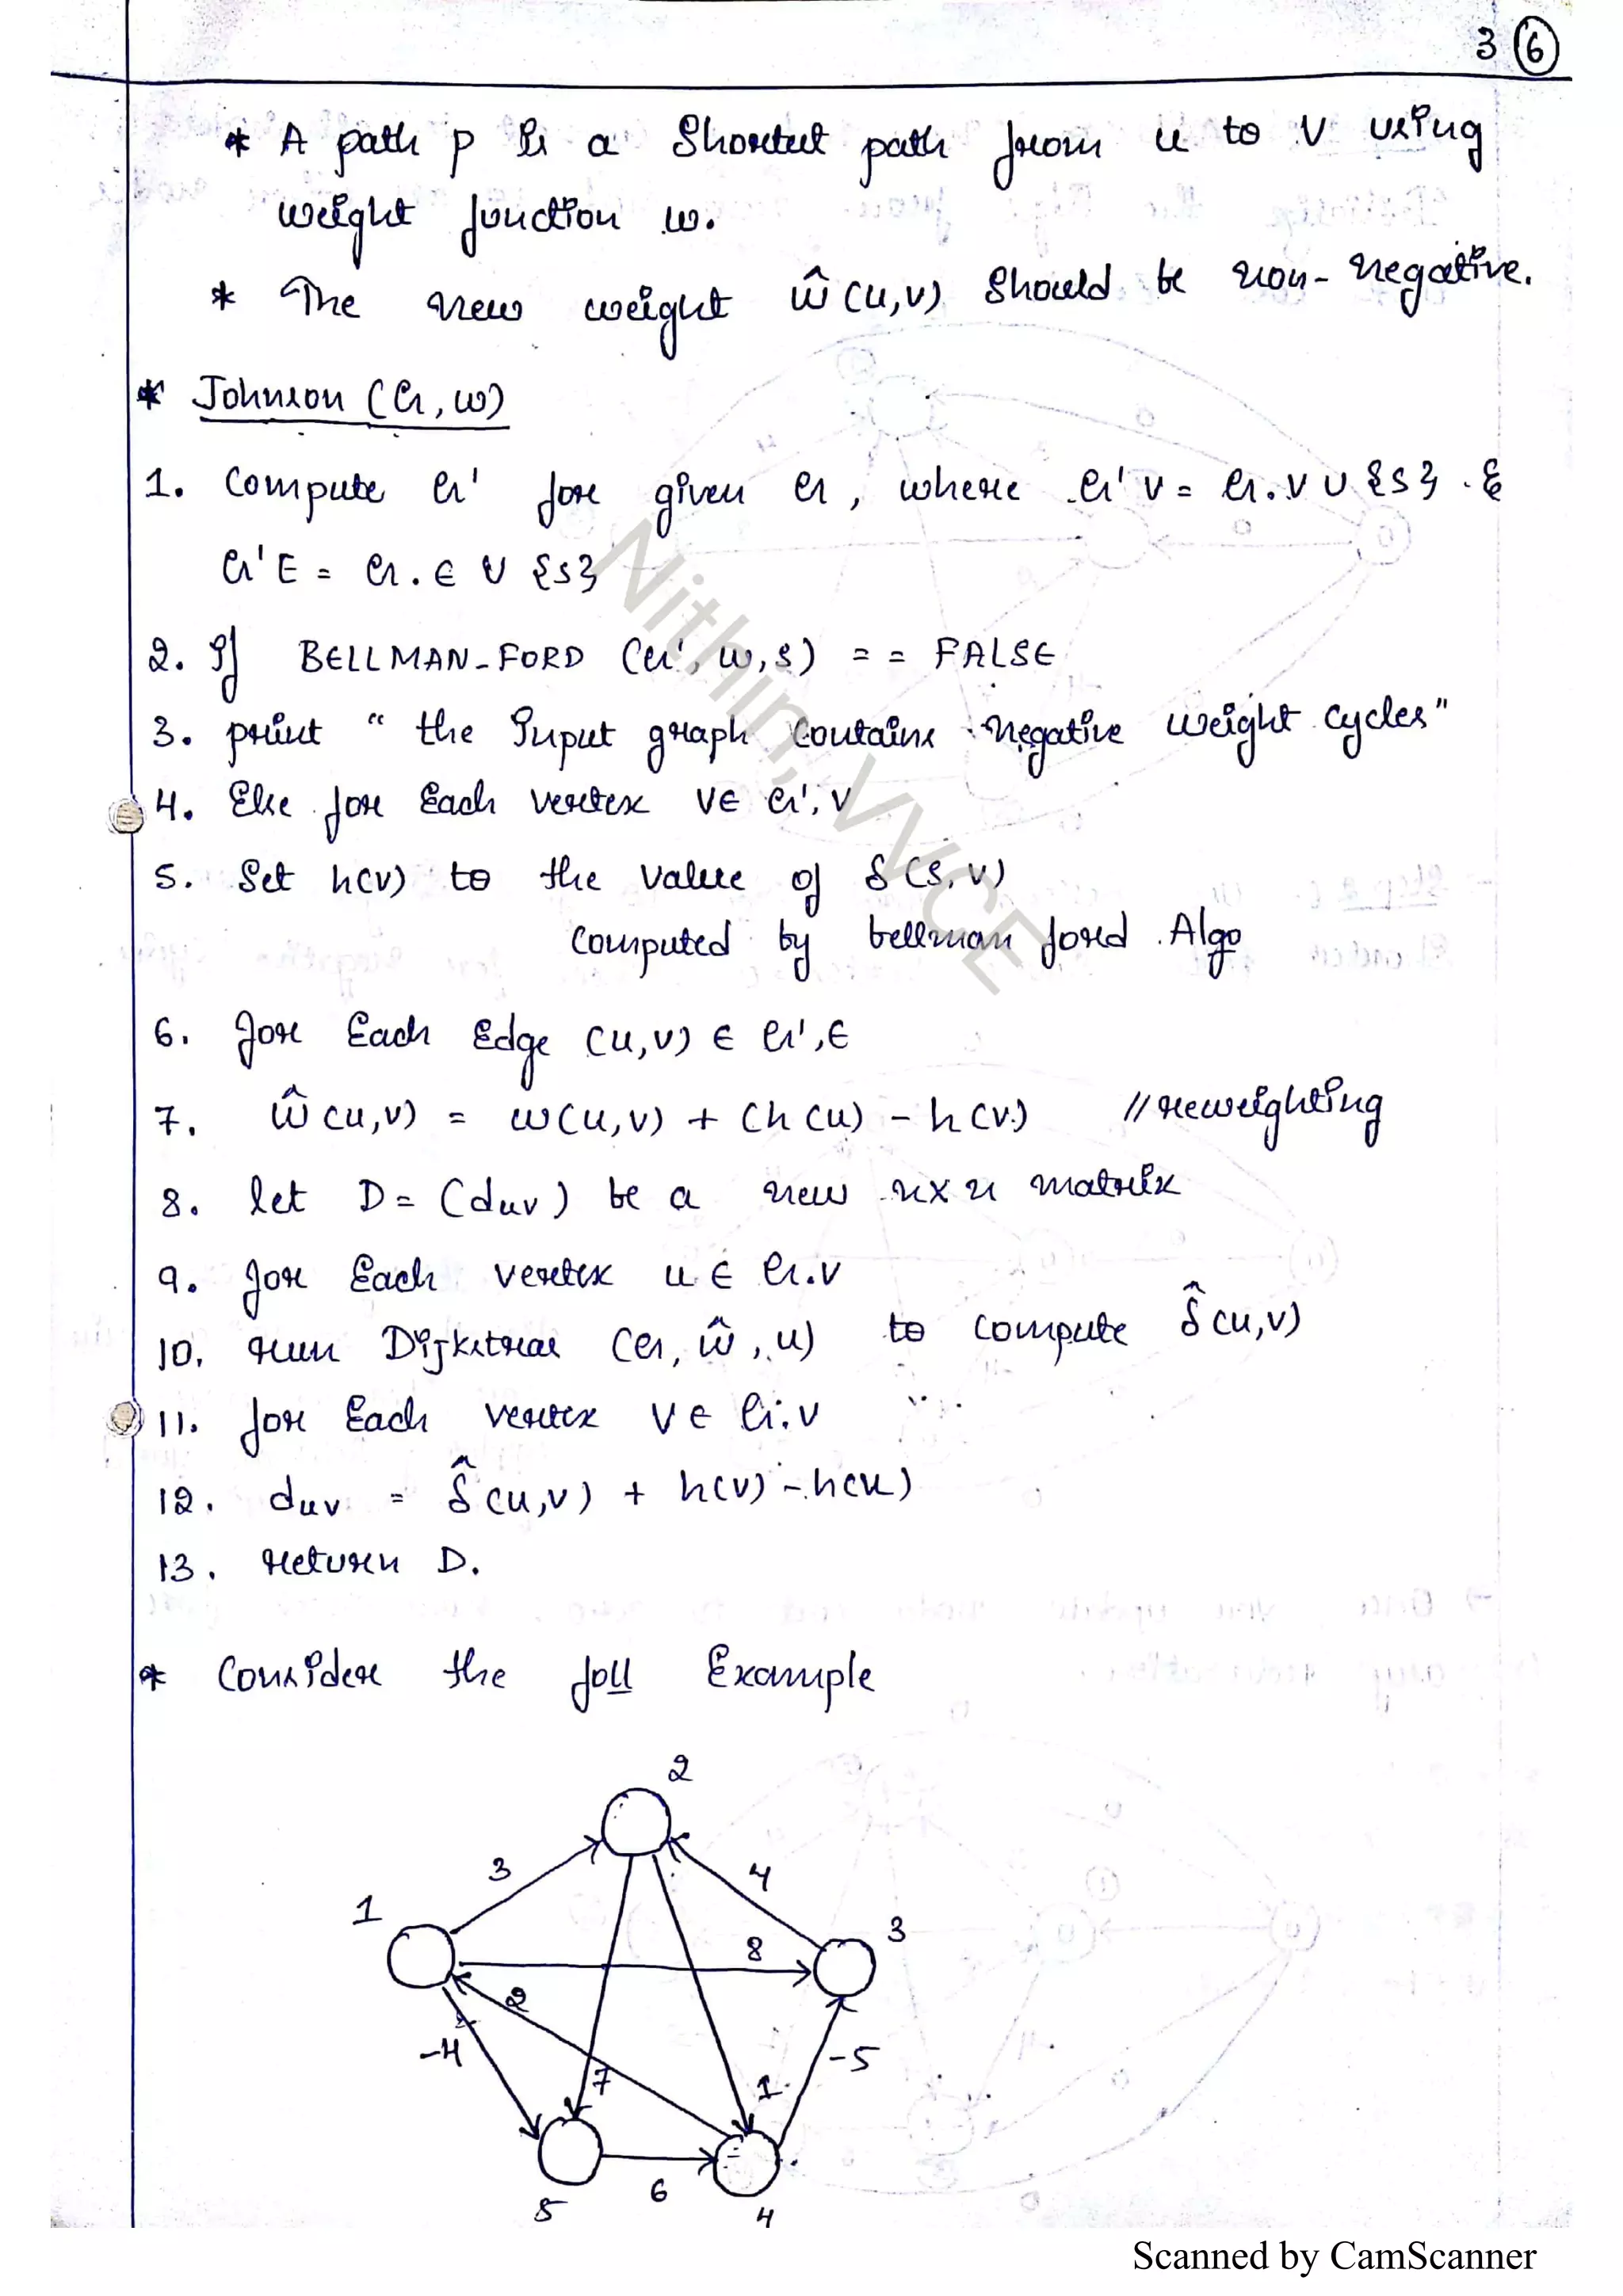 3 6
* A path p is a Shortest path from u to v using
weight function w.
* The new weight ŵ(u,v) Should be non-negative.
* Johnson (G,w)
1. Compute G' for given G, where G'V = G.V ∪ {S} . &
G'E = G.E ∪ {S}
2. If BELLMAN-FORD (G', w, s) == FALSE
3. print "the Input graph Contains negative weight cycles"
4. Else for Each vertex v∈ G'.V
5. Set h(v) to the value of δ(S,v)
Computed by bellman ford Algo
6. For Each Edge (u,v) ∈ G'.E
7. ŵ(u,v) = w(u,v) + (h(u) - h(v) // reweighting
8. let D = (duv) be a new nxn matrix
9. for Each vertex u ∈ G.V
10. run Dijkstras (G, ŵ, u) to compute δ̂(u,v)
11. for Each vertex v ∈ G.V
12. duv = δ̂(u,v) + h(v) - h(u)
13. return D.
* Consider the foll Example
2
3
4
1
3
8
2
-4
-5
7
1
6
5
4
Nithin, VVCE
Scanned by CamScanner